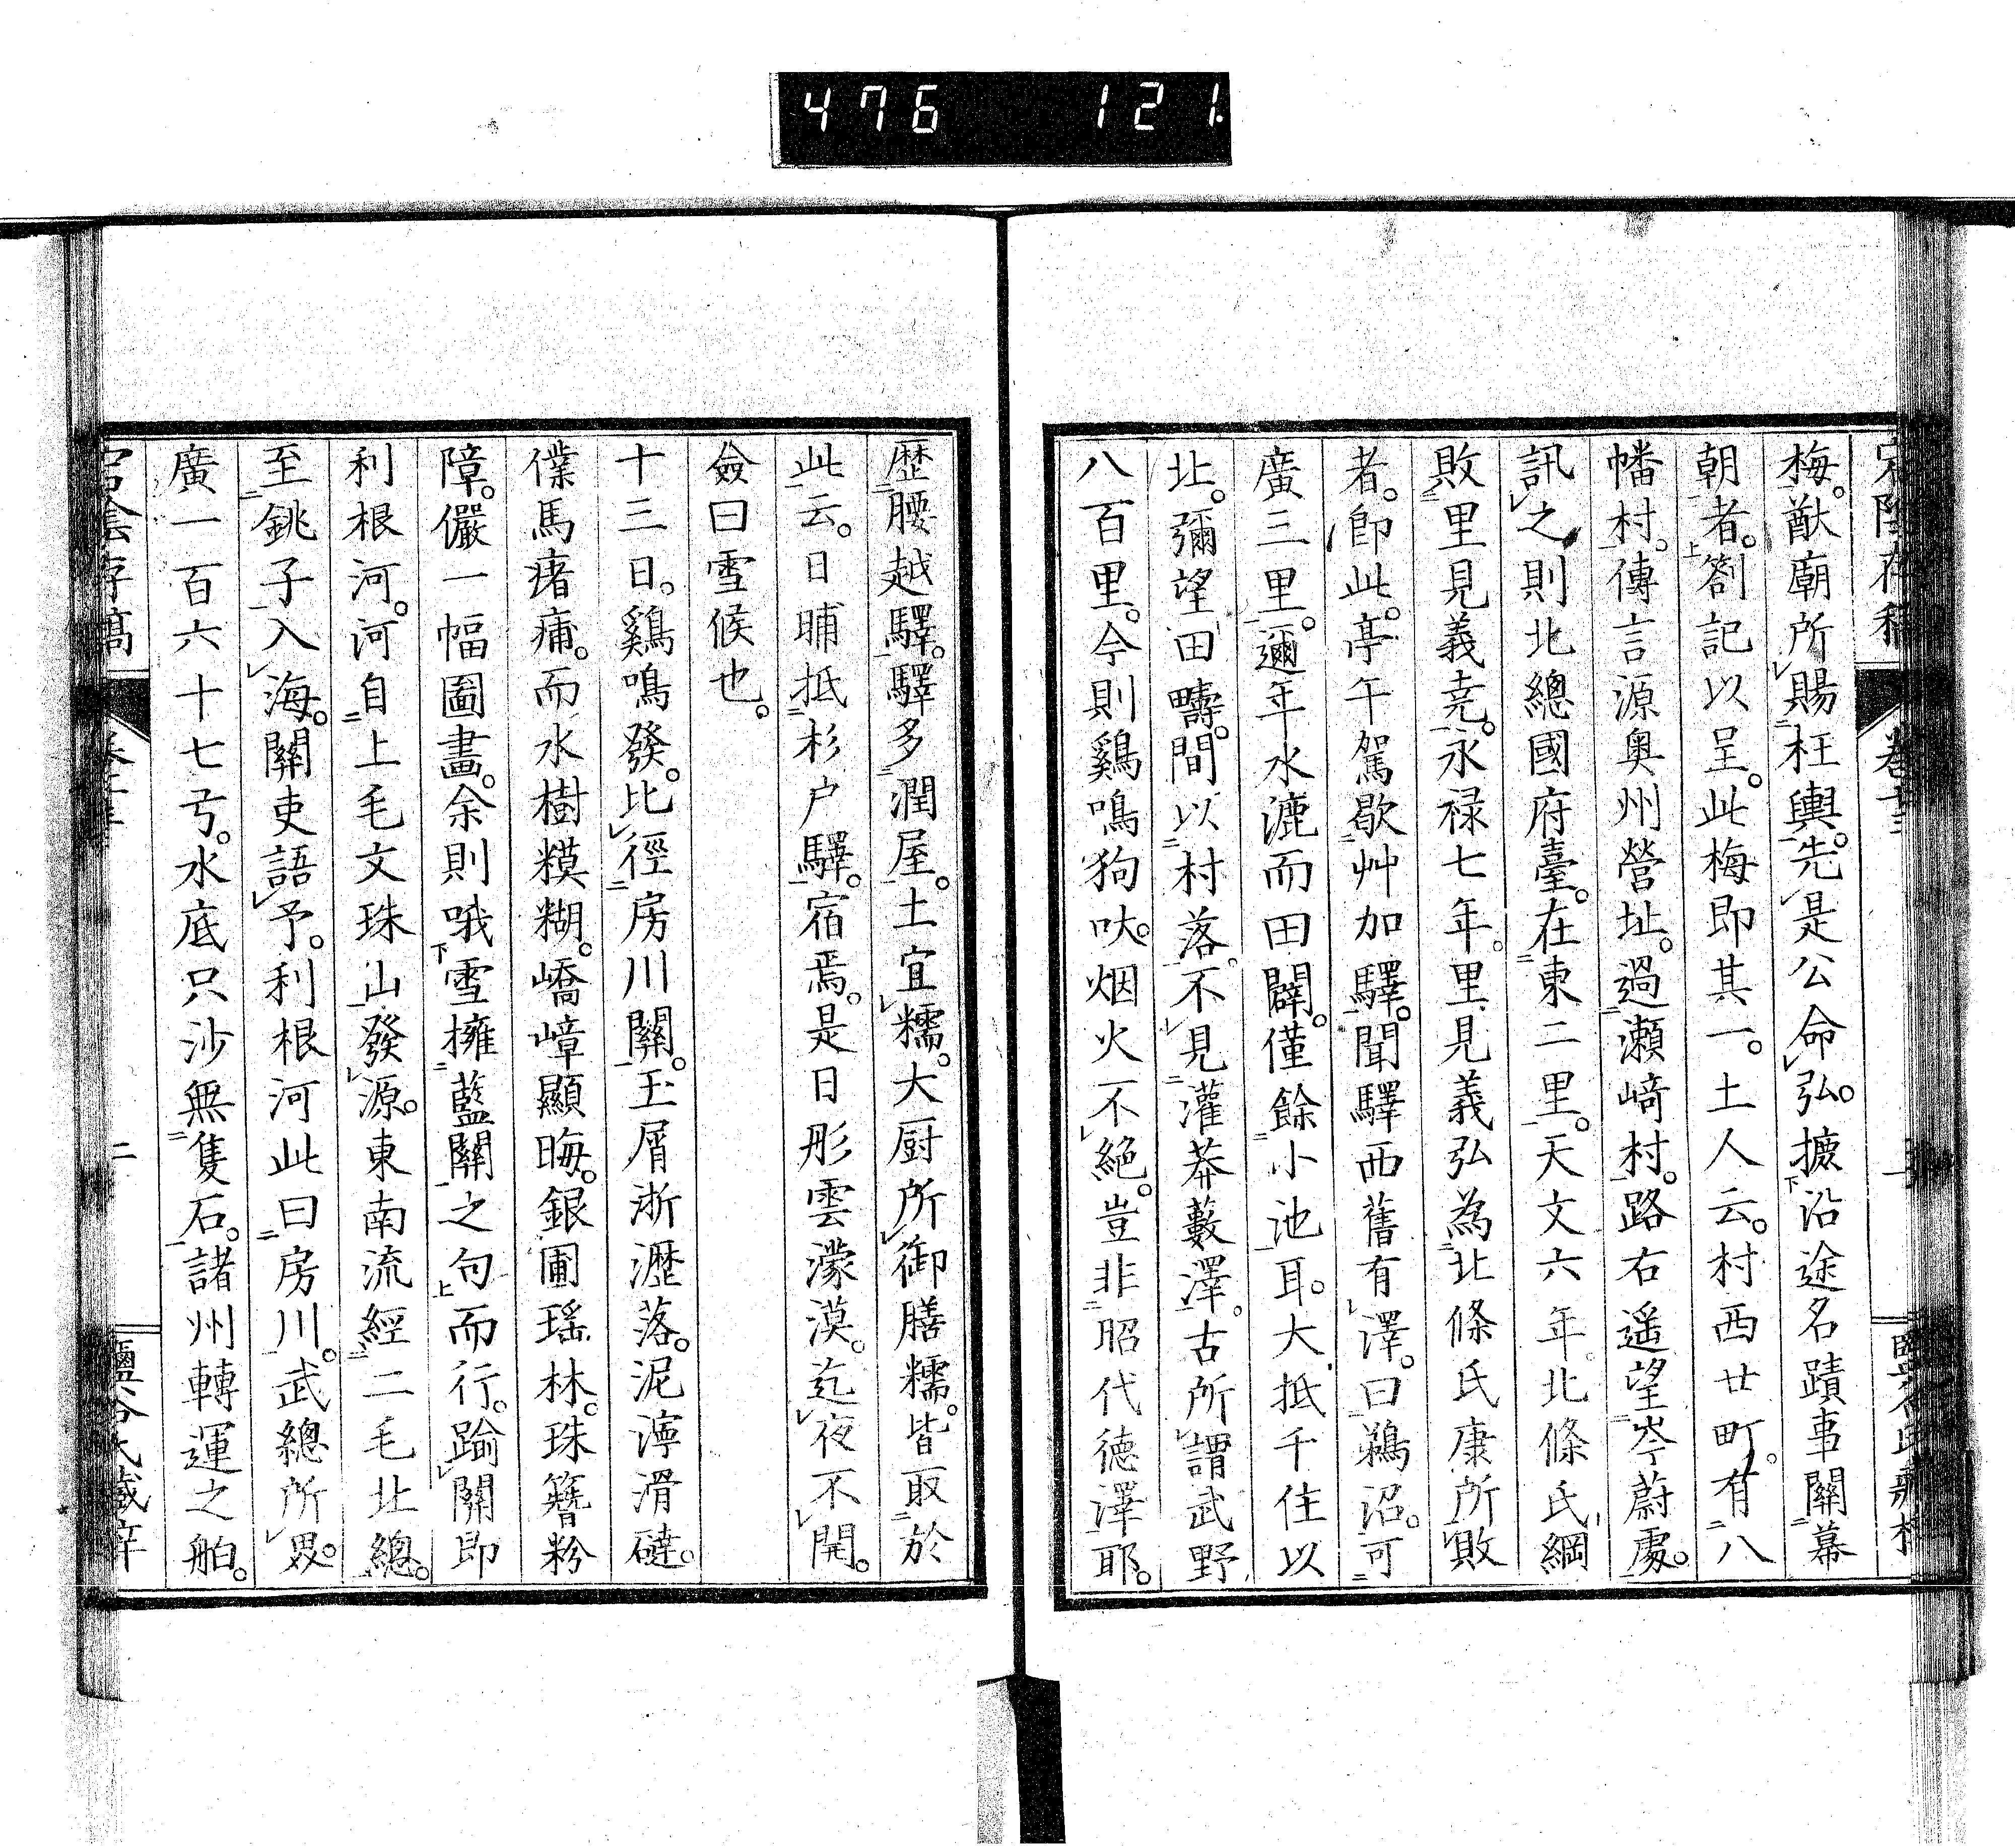 476 121.
梅。猷廟所賜枉輿。先是公命弘。摭沿途名蹟事關幕
朝者。劄記以呈。此梅即其一。土人云。村西廿町。有八
幡村。傳言源奥州營址。過瀬﨑村。路右遥望岑蔚處。
訊之則北總國府臺。在東二里。天文六年。北條氏綱
敗里見義尭。永禄七年。里見義弘為北條氏康所敗
者。即此。亭午駕歇艸加驛。聞驛西舊有澤。曰鵜沼。可
廣三里。邇年水漉而田闢。僅餘小池耳。大抵千住以
北。彌望田疇。間以村落。不見灌莽藪澤。古所謂武野
八百里。今則鷄鳴狗吠。烟火不絶。豈非昭代徳澤耶。
歴腰越驛。驛多潤屋。土宜糯。大厨所御膳糯。皆取於
此云。日晡抵杉户驛。宿焉。是日彤雲濛漠。迄夜不開。
僉曰雪候也。
十三日。鷄鳴發。比徑房川關。玉屑淅瀝落。泥濘滑㳠。
僕馬瘏痡。而水樹糢糊。嶠嶂顯晦。銀圃瑶林。珠簪粉
障。儼一幅圖畫。余則哦雪擁藍關之句而行。踰關即
利根河。河自上毛文珠山發源。東南流經二毛北總。
至銚子入海。關吏語予。利根河此曰房川。武總所界。
廣一百六十七弓。水底只沙無隻石。諸州轉運之舶。